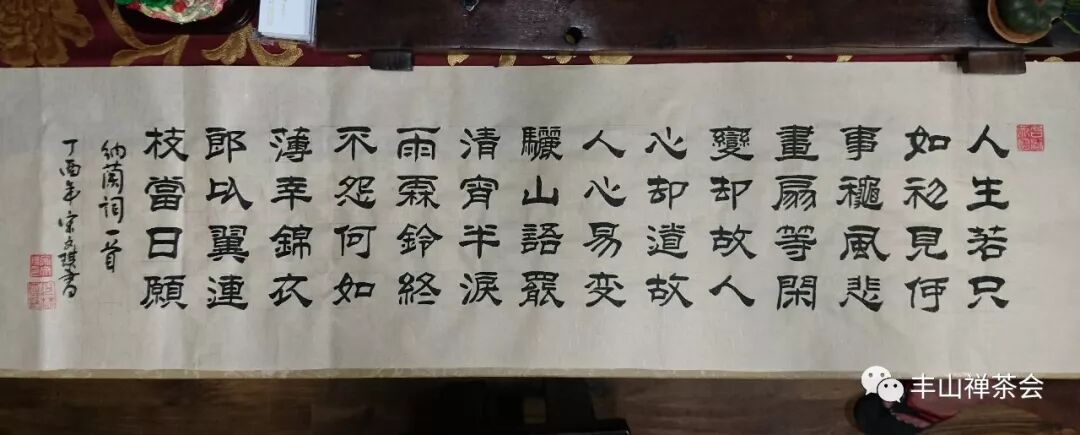 人生若只
如初見何
事穐風悲
畫扇等閑
變却故人
心却道故
人心易变
驪山語罷
清宵半淚
雨霖鈴終
不怨何如
薄幸錦衣
郎比翼連
枝當日願
納蘭詞一首
丁酉年宋文琪書
丰山禅茶会